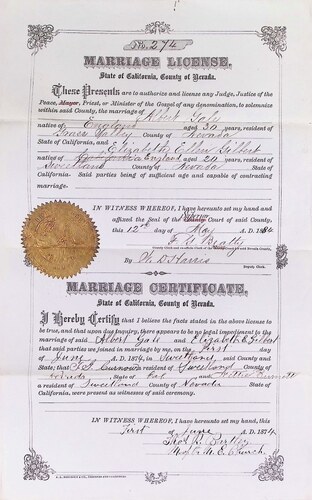 No. 274
MARRIAGE LICENSE.
State of California, County of Nevada.
These Presents are to authorize and license any Judge, Justice of the
Peace, Mayor, Priest, or Minister of the Gospel of any denomination, to solemnize
within said County, the marriage of Albert Gals
native of England aged 30 years, resident of
Grass Valley County of Nevada
State of California, and Elizabeth Ellen Gilbert
native of England aged 20 years, resident of
Sweetland County of Nevada State of
California. Said parties being of sufficient age and capable of contracting
marriage.
IN WITNESS WHEREOF, I have hereunto set my hand and
affixed the Seal of the County Court of said County, this
12th day of May A. D. 18
F. G. Beatty
By W. D. Harris
Deputy Clerk.
MARRIAGE CERTIFICATE.
State of California, County of Nevada.
I Hereby Certify that I believe the facts stated in the above license to
be true, and that upon due inquiry, there appears to be no legal impediment to the
marriage of said Albert Gals and Elizabeth E. Gilbert
that said parties were joined in marriage by me, on the First day
of June A. D. 1874, in Sweetland, said County and
State; that Curnow a resident of Sweetland County of
Nevada State of Cal and
a resident of Sweetland County of Nevada State of
California, were present as witnesses of said ceremony.
IN WITNESS WHEREOF, I have hereunto set my hand, this
First of June A. D. 1874
Thos. Bertley
M. E. Church.